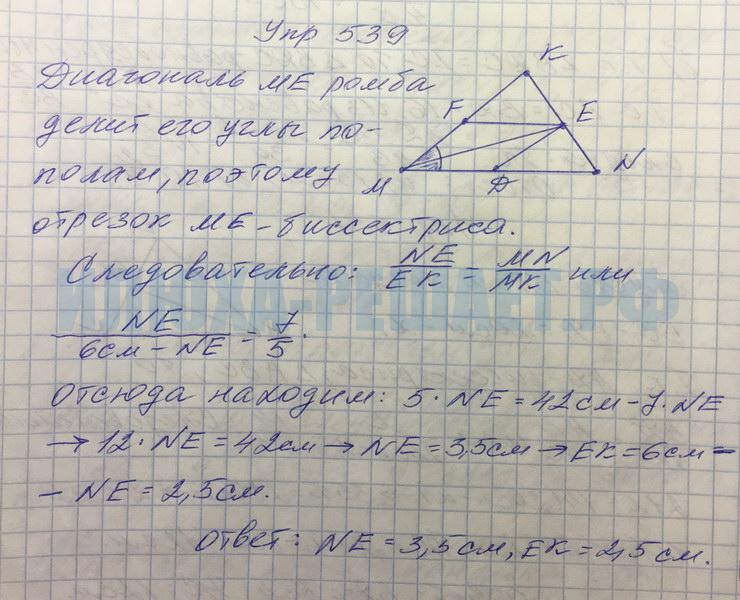 Упр 539
Диагональ ME ромба
делит его углы по-
полам, поэтому
отрезок ME - биссектриса.
K
F
E
M
D
N
Следовательно: NE/EK = MN/MK или
NE/6см - NE = 7/5.
Отсюда находим: 5 · NE = 42см - 7 · NE
→ 12 · NE = 42см → NE = 3,5см → EK = 6см -
- NE = 2,5см.
Ответ: NE = 3,5см, EK = 2,5см.
ИЛЮХА-РЕШАЕТ.РФ